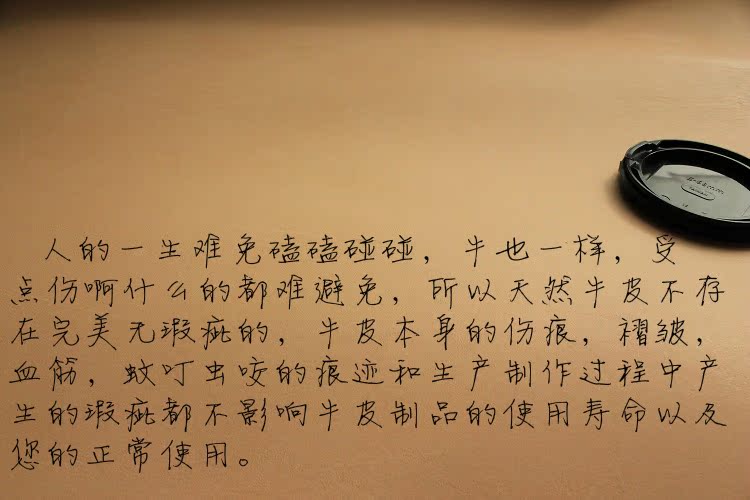 人的一生难免磕磕碰碰，牛也一样，受
点伤啊什么的都难避免，所以天然牛皮不存
在完美无瑕疵的，牛皮本身的伤痕，褶皱，
血筋，蚊叮虫咬的痕迹和生产制作过程中产
生的瑕疵都不影响牛皮制品的使用寿命以及
您的正常使用。